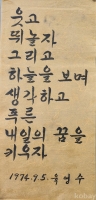 웃고
뛰놀자
그리고
하늘을 보며
생각하고
푸른
내일의 꿈을
키우자
1974.9.5. 육영수